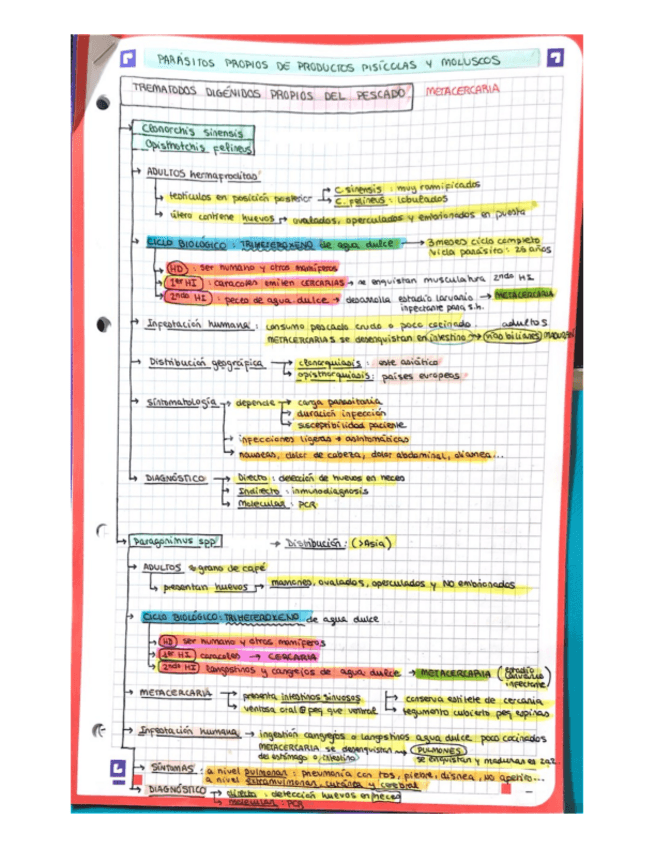 PARÁSITOS PROPIOS DE PRODUCTOS PISÍCOLAS Y MOLUSCOS
TREMATODOS DIGÉNIDOS PROPIOS DEL PESCADO METACERCARIA
Clonorchis sinensis
Opisthotchis felineus
ADULTOS hermafroditas
testículos en posición posterior → C. sinensis : muy ramificados
C. felineus : lobulados
útero contiene huevos → ovalados, operculados y embrionados en puesta
CICLO BIOLÓGICO : TRIHETEROXENO de agua dulce → 3 meses ciclo completo
vida parásito : 26 años
HD : ser humano y otros mamíferos
1er HI : caracoles emiten CERCARIAS → se enquistan musculatura 2ndo HI
2ndo HI : peces de agua dulce → desarrolla estadío larvario → METACERCARIA
infectante para s.h.
Infestación humana : consumo pescado crudo o poco cocinado. adultos
METACERCARIAS se desenquistan en intestino → vías biliares MADURAN
Distribución geográfica → clonorquiasis : este asiático
opistorquiasis : países europeos
Sintomatología → depende → carga parasitaria
duración infección
susceptibilidad paciente
infecciones ligeras → asintomáticas
nauseas, dolor de cabeza, dolor abdominal, diarrea...
DIAGNÓSTICO → Directo : detección de huevos en heces
Indirecto : inmunodiagnosis
Molecular : PCR
Paragonimus spp → Distribución : (>Asia)
ADULTOS grano de café
presentan huevos → marrones, ovalados, operculados y NO embrionados
CICLO BIOLÓGICO : TRIHETEROXENO de agua dulce
HD ser humano y otros mamíferos
1er HI caracoles → CERCARIA
2ndo HI langostinos y cangrejos de agua dulce → METACERCARIA (estadío larvario infectante)
METACERCARIA → presenta intestinos sinuosos → conserva estilete de cercaria
ventosa oral peq que ventral → tegumento cubierto peq espinas
Infestación humana → ingestión cangrejos o langostinos agua dulce poco cocinados
METACERCARIA se desenquistan → PULMONES
de estómago o intestino se enquistan y maduran es 2a2.
SÍNTOMAS : a nivel pulmonar : pneumonía con tos, fiebre, disnea, no apetito...
a nivel extrapulmonar, cutánea y cerebral
DIAGNÓSTICO → directo : detección huevos en heces
molecular : PCR